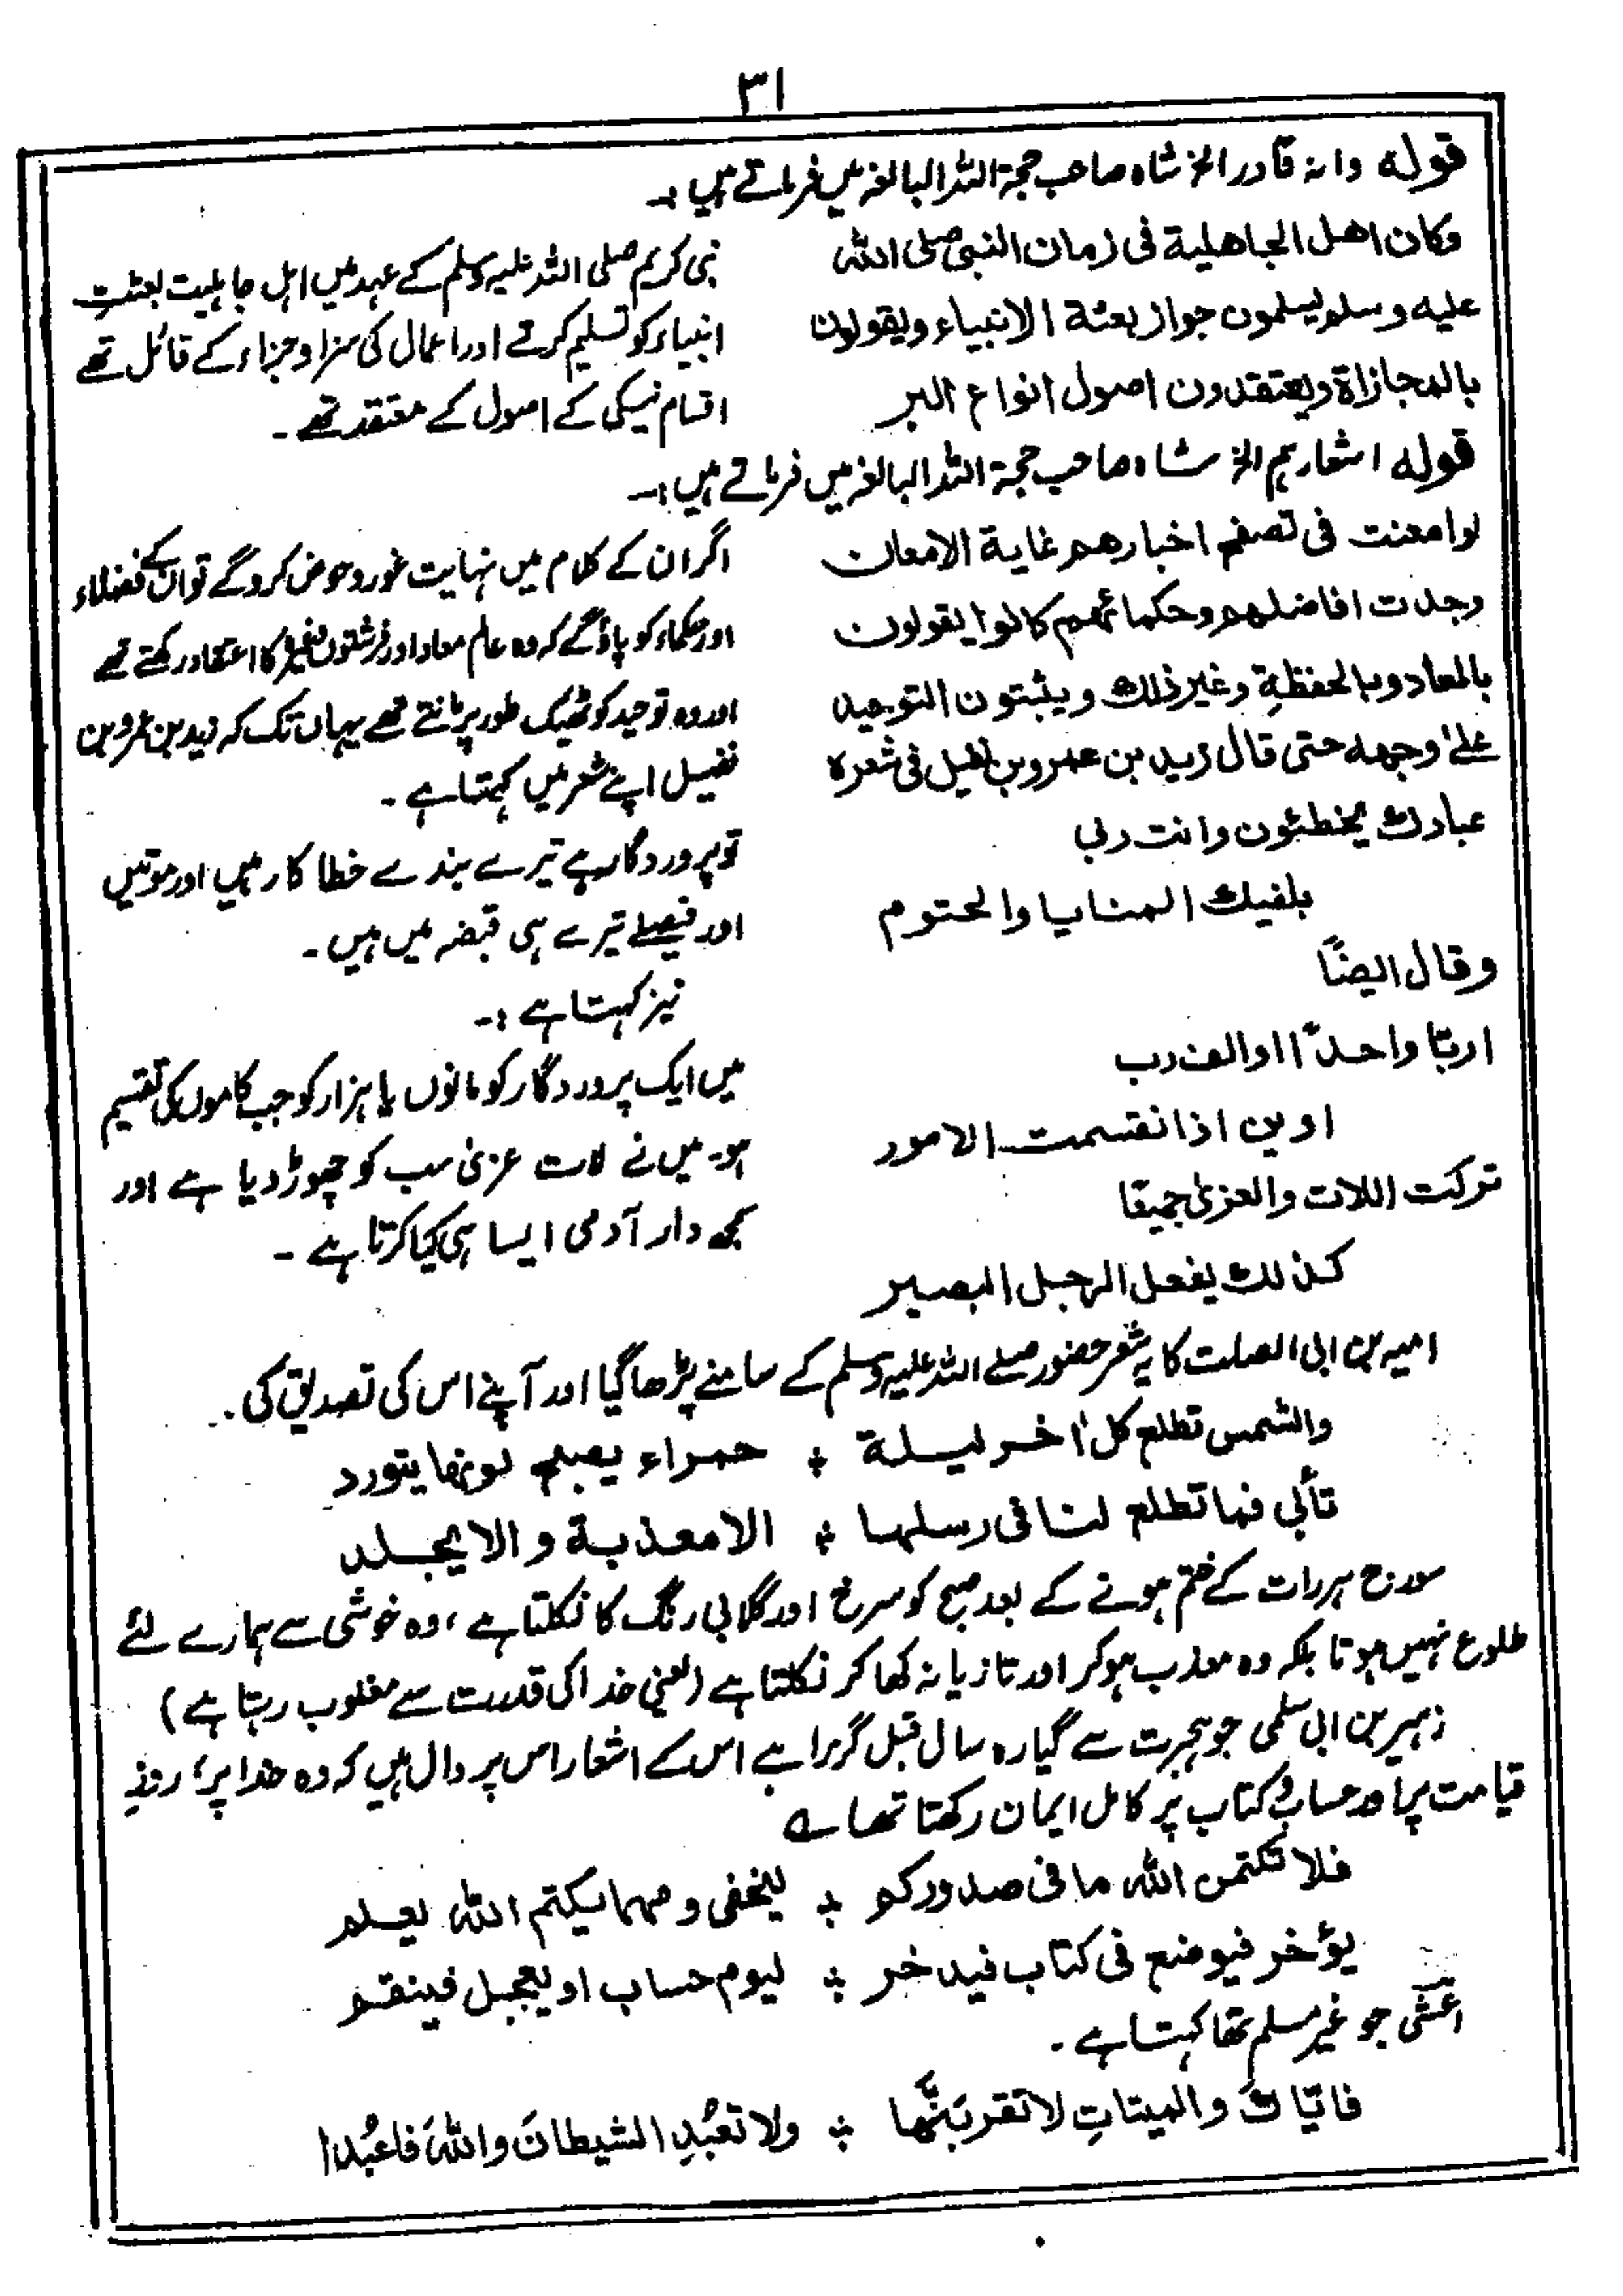 ۳۱
قوله وانہ قادر الخ شاہ صاحب حجۃ اللہ البالغہ میں فرماتے ہیں :۔
وكان اهل الجاهلية فى زمان النبى صلى الله
عليه وسلم يسلمون جواز بعثة الانبياء ويقولون
بالمجازاة ويعتقدون اصول انواع البر
نبی کریم صلی اللہ علیہ وسلم کے عہد میں اہل جاہلیت بعثتِ
انبیاء کو تسلیم کرتے اور اعمال کی سزا و جزاء کے قائل تھے
اقسام نیکی کے اصول کے معتقد تھے ۔
قوله اشعارہم الخ شاہ صاحب حجۃ اللہ البالغہ میں فرماتے ہیں :۔
لو امعنت فى تصفح اخبارهم غاية الامعان
وجدت افاضلهم وحكمائهم كانوا يقولون
بالمعاد وبالحفظةِ وغير ذلك ويثبتون التوحيد
على وجهه حتى قال زيد بن عمرو بن نفيل فى شعره
عبادك يخطئون وانت ربى
بلفيك المنايا والحتوم
وقال ايضًا
اربّا واحدًا او الف رب
ادين اذا نقسمت الامور
تركت اللات والعزىٰ جميعًا
كذلك يفعل الرجل البصير
اگر ان کے کلام میں نہایت غور وخوض کروگے تو ان کے فضلاء
اور حکماء کو پاؤگے کہ وہ عالم معاد اور فرشتوں وغیرہ کا اعتقاد رکھتے تھے
اور وہ توحید کو ٹھیک طور پر مانتے تھے یہاں تک کہ زید بن عمرو بن
نفیل اپنے شعر میں کہتا ہے ۔
تو پروردگار ہے تیرے بندے خطا کار ہیں اور موتیں
اور فیصلے تیرے ہی قبضہ میں ہیں ۔
نیز کہتا ہے :۔
میں ایک پروردگار کو مانوں یا ہزار کو جب کاموں کی تقسیم
ہو۔ میں نے لات عزیٰ سب کو چھوڑ دیا ہے اور
سمجھ دار آدمی ایسا ہی کیا کرتا ہے ۔
امیہ بن ابی الصلت کا یہ شعر حضور صلے اللہ علیہ وسلم کے سامنے پڑھا گیا اور آپنے اس کی تصدیق کی ۔
والشمس تطلع كل اٰخر ليلة ؞ حمراء يصبح لونها يتورد
تأبى فما تطلع لنا فى رسلها ؞ الا معذبة والا يجلد
سورج ہر رات کے ختم ہونے کے بعد صبح کو سرخ اور گلابی رنگ کا نکلتا ہے ، وہ خوشی سے ہمارے لئے
طلوع نہیں ہوتا بلکہ وہ معذب ہوکر اور تازیانہ کھا کر نکلتا ہے (یعنی خدا کی قدرت سے مغلوب رہتا ہے)
زہیر بن ابی سلمی جو ہجرت سے گیارہ سال قبل گزرا ہے اس کے اشعار اس پر دال ہیں کہ وہ خدا پر، روزِ
قیامت پر اور حساب و کتاب پر کامل ایمان رکھتا تھا ؎
فلا تكتمن الله ما فى صدوركم ؞ ليخفى ومهما يكتم الله يعلم
يؤخر فيوضع فى كتاب فيدخر ؞ ليوم حساب او يعجل فينقم
اعشٰی جو غیر مسلم تھا کہتا ہے ۔
فايّاك والميتاتِ لا تقربَنَّها ؞ ولا تعبُدِ الشيطانَ واللهَ فاعبُدا